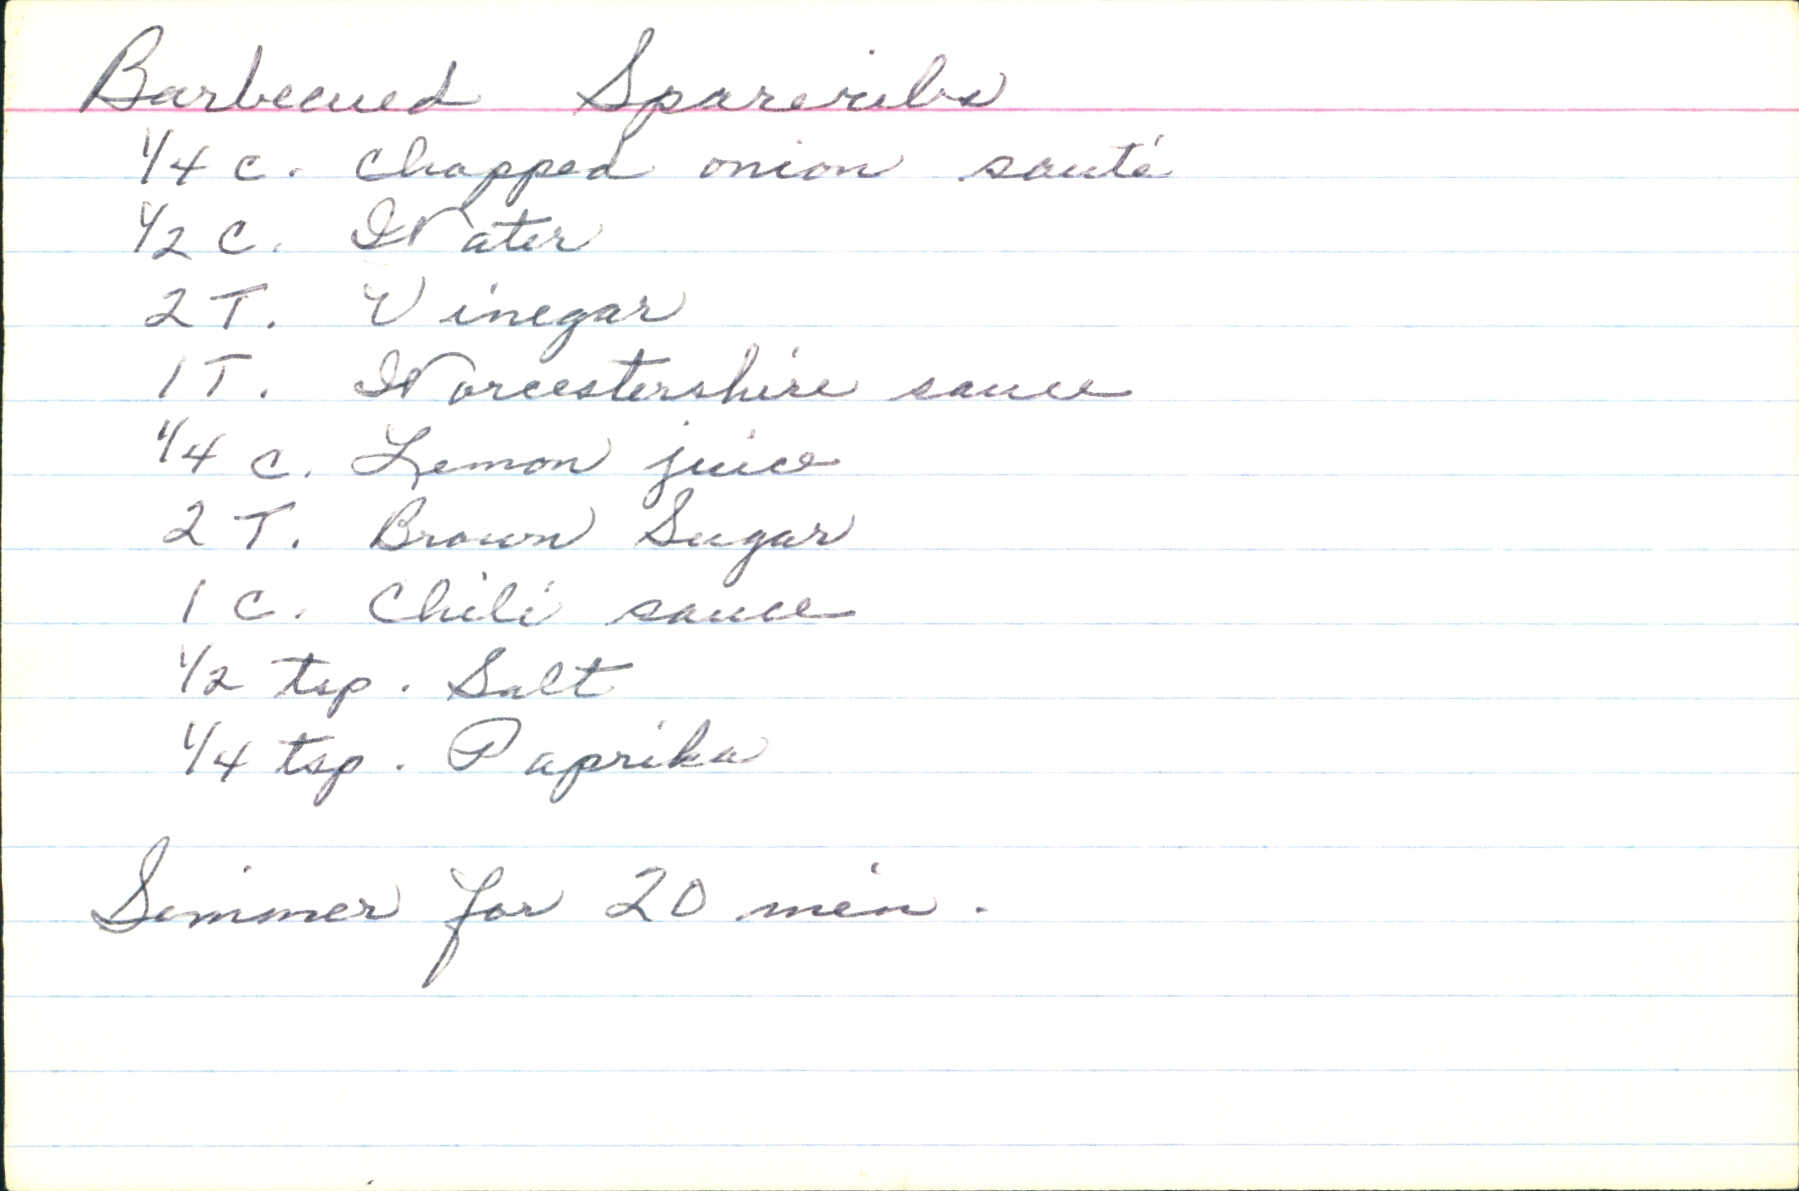 Barbecued Spareribs
1/4 c. Chopped onion sauté
1/2 c. Water
2 T. Vinegar
1 T. Worcestershire sauce
1/4 c. Lemon juice
2 T. Brown Sugar
1 c. Chili sauce
1/2 tsp. Salt
1/4 tsp. Paprika
Simmer for 20 min.